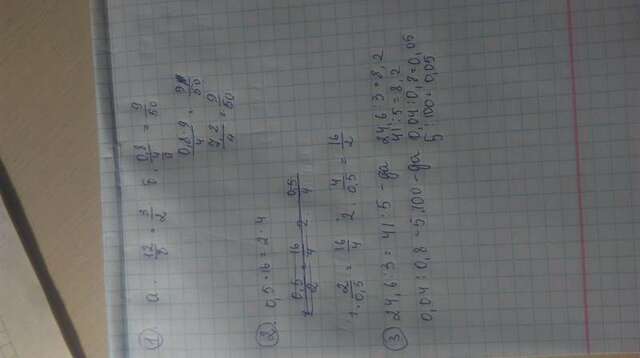 1. а. 12/8 = 3/2 б. 0,8/4 = 9/50
0,8·9/4 = 9/50
7,2/4 = 9/50
2. 0,5·16 = 2·4
1. 2/0,5 = 16/4 2. 4/0,5 = 16/2
3 24,6:3 = 41:5 - да 24,6:3=8,2
41:5=8,2
0,04:0,8=5:100 - да 0,04:0,8=0,05
5:100=0,05